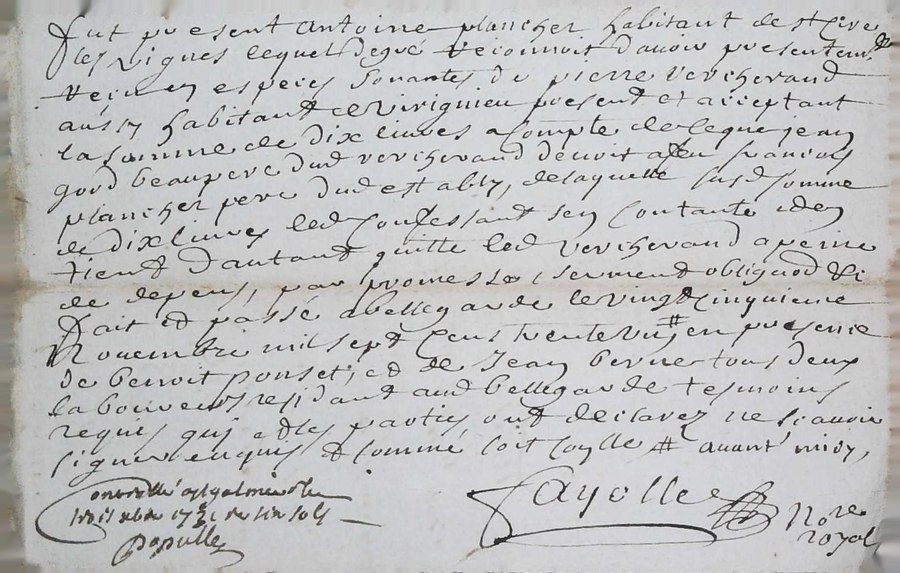 fut present antoine plancher habitant de st Cire
les vignes lequel de gré reconnoit d'avoir presentemt
receu en especes sonantes de pierre vercherand
aussy habitant de virignieu present et acceptant
la somme de dix livres a compte de ce que jean
gord beaupere dud vercherand devoit a feu francois
plancher pere dud estably, de laquelle susd somme
de dix livres led confessant sen contante et en
tient d'autant quitte led vercherand a peine
de depens, par promesse serment obligaon &
fait et passé a bellegarde le vingt cinquieme
Novembre mil sept cens trente un # en presence
de benoit ponset, et de Jean berne tous deux
laboureurs residant aud bellegarde tesmoins
requis qui et les parties ont declarez ne scavoir
signer enquis et sommé soit soylle # avant midy,
Fayolle Nore
royal
controllé a st galmier le
trois xbre 1731 de six sols